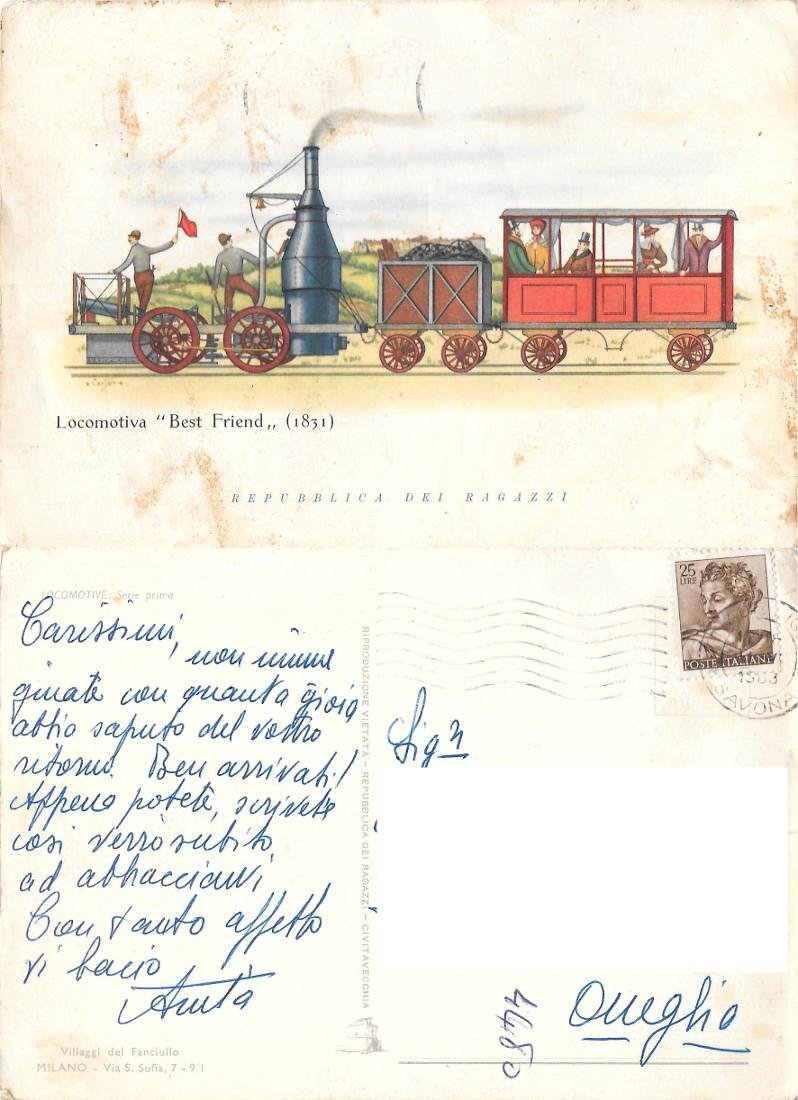 Locomotiva “Best Friend„ (1831)
REPUBBLICA DEI RAGAZZI
LOCOMOTIVE: Serie prima
Carissimi,
non imma
ginate con quanta gioia
abbio saputo del vostro
ritorno. Ben arrivati!
Appena potete, scrivete
così verrò subito
ad abbracciarvi
Con tanto affetto
vi bacio
Anita
Villaggi del Fanciullo
MILANO - Via S. Sofia, 7 - 9/1
RIPRODUZIONE VIETATA - REPUBBLICA DEI RAGAZZI - CIVITAVECCHIA
25
LIRE
POSTE ITALIANE
1963
SAVONA
Sigri
Oneglia
4480